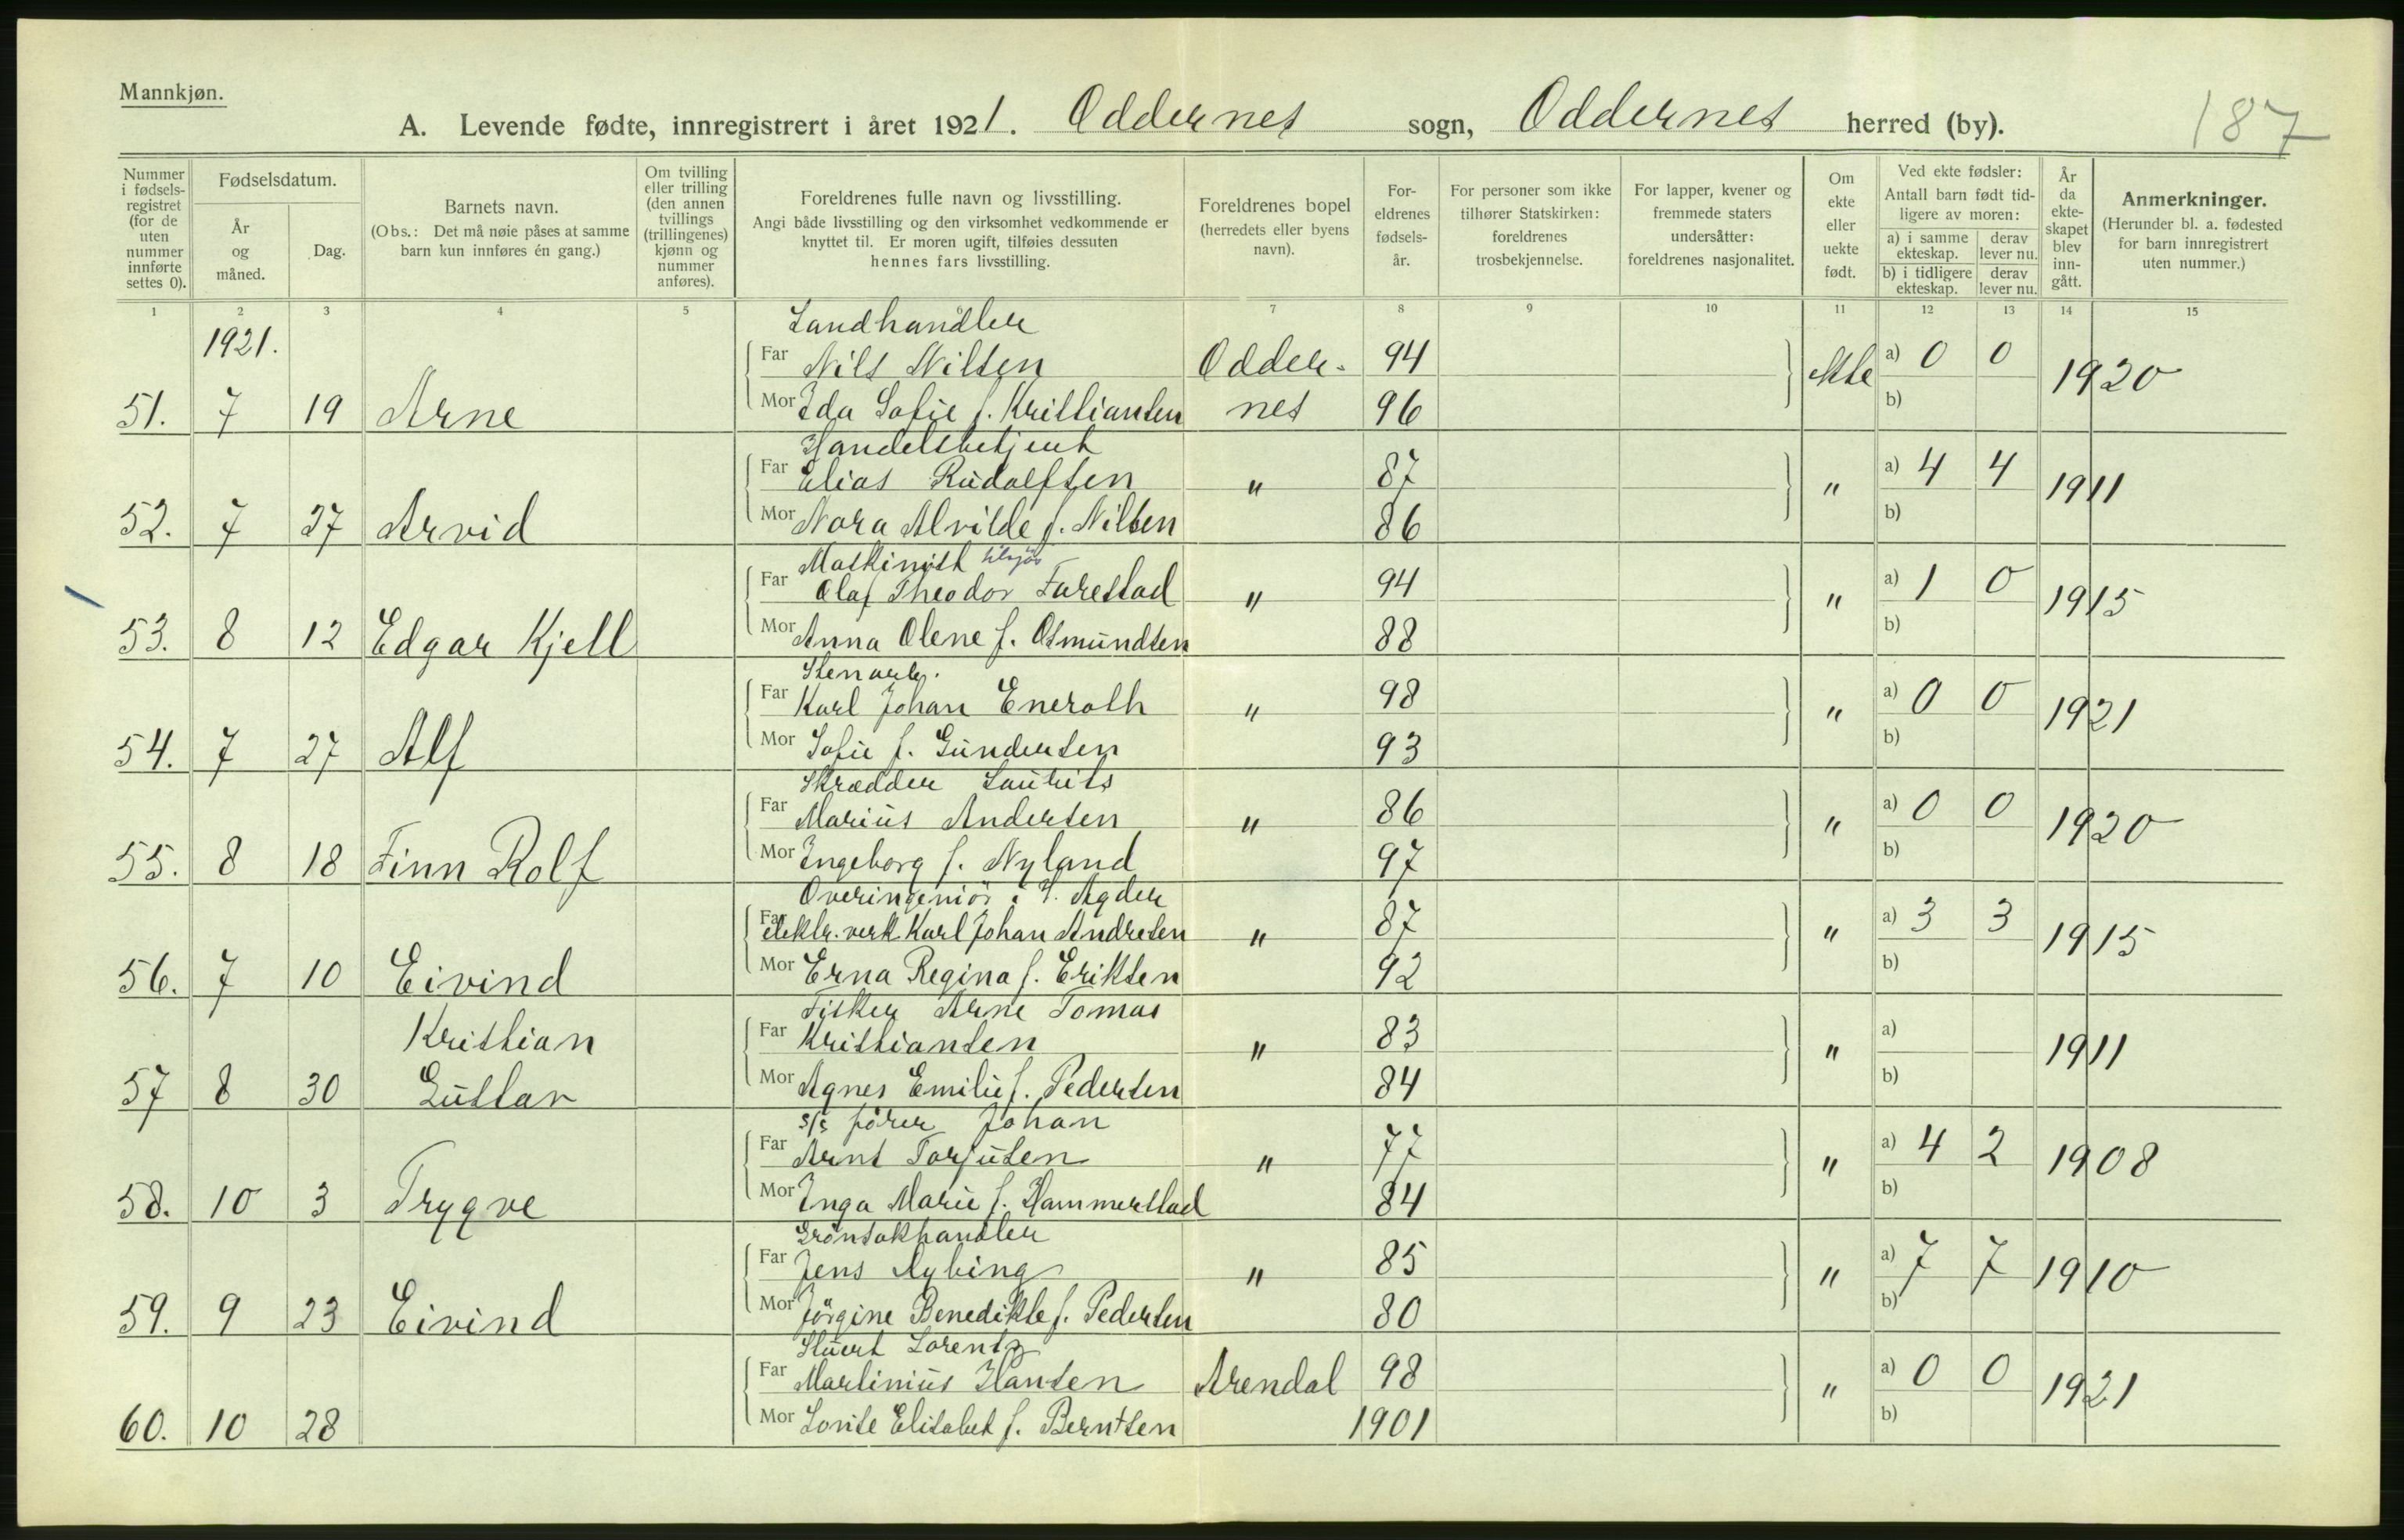 Mannkjøn.
A. Levende fødte, innregistrert i året 1921. Oddernes sogn, Oddernes herred (by). 187
Nummer i fødsels-registret (for de uten nummer innførte settes 0).
Fødselsdatum.
År og måned.
Dag.
Barnets navn.
(Obs.: Det må nøie påses at samme barn kun innføres én gang.)
Om tvilling eller trilling (den annen tvillings (trillingenes) kjønn og nummer anføres).
Foreldrenes fulle navn og livsstilling.
Angi både livsstilling og den virksomhet vedkommende er knyttet til. Er moren ugift, tilføies dessuten hennes fars livsstilling.
Foreldrenes bopel (herredets eller byens navn).
For-eldrenes fødsels-år.
For personer som ikke tilhører Statskirken: foreldrenes trosbekjennelse.
For lapper, kvener og fremmede staters undersåtter: foreldrenes nasjonalitet.
Om ekte eller uekte født.
Ved ekte fødsler: Antall barn født tid-ligere av moren:
a) i samme ekteskap. derav lever nu.
b) i tidligere ekteskap. derav lever nu.
År da ekte-skapet blev inn-gått.
Anmerkninger.
(Herunder bl. a. fødested for barn innregistrert uten nummer.)
1 2 3 4 5 7 8 9 10 11 12 13 14 15
1921.
Landhandler
Far Nils Nilsen Odder- 94 ekte a) 0 0 1920
51. 7 19 Arne Mor Ida Sofie f. Kristiansen nes 96 b)
Handelsbetjent
Far Elias Rudolfsen " 87 " a) 4 4 1911
52. 7 27 Arvid Mor Nora Alvilde f. Nilsen 86 b)
Maskinist tilsjøs
Far Olaf Theodor Farestad " 94 " a) 1 0 1915
53. 8 12 Edgar Kjell Mor Anna Olene f. Osmundsen 88 b)
Stenarb.
Far Karl Johan Eneroth " 98 " a) 0 0 1921
54. 7 27 Alf Mor Sofie f. Gundersen 93 b)
Skrædder Laurits
Far Marius Andersen " 86 " a) 0 0 1920
55. 8 18 Finn Rolf Mor Ingeborg f. Nyland 97 b)
Overingeniør i V. Agder
Far elektr. verk Karl Johan Andresen " 87 " a) 3 3 1915
56. 7 10 Eivind Mor Erna Regina f. Eriksen 92 b)
Fisker Arne Tomas
Kristian Far Kristiansen " 83 " a) 1911
57 8 30 Gustav Mor Agnes Emilie f. Pedersen 84 b)
s/s fører Johan
Far Arnt Torjusen " 77 " a) 4 2 1908
58. 10 3 Trygve Mor Inga Marie f. Hammerstad 84 b)
Grønsakhandler
Far Jens Nybing " 85 " a) 7 7 1910
59. 9 23 Eivind Mor Jörgine Benedikte f. Pedersen 80 b)
Stuert Lorentz
Far Martinius Hansen Arendal 98 " a) 0 0 1921
60. 10 28 Mor Lovise Elisabet f. Berntsen 1901 b)